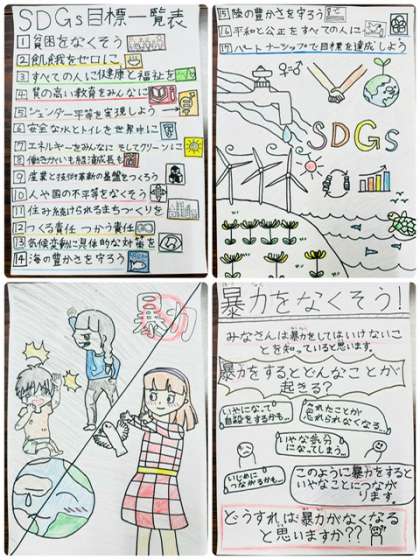 SDGs目標一覧表
1 貧困をなくそう
2 飢餓をゼロに
3 すべての人に健康と福祉を
4 質の高い教育をみんなに
5 ジェンダー平等を実現しよう
6 安全な水とトイレを世界中に
7 エネルギーをみんなに そしてクリーンに
8 働きがいも経済成長も
9 産業と技術革新の基盤をつくろう
10 人や国の不平等をなくそう
11 住み続けられるまちづくりを
12 つくる責任 つかう責任
13 気候変動に具体的な対策を
14 海の豊かさを守ろう
15 陸の豊かさを守ろう
16 平和と公正をすべての人に
17 パートナーシップで目標を達成しよう
SDGs
暴力
暴力をなくそう!
みなさんは暴力をしてはいけないこ
とを知っていると思います。
暴力をするとどんなことが
起きる?
いやになって
自殺をするかも...
忘れたことが
忘れられなくなる...
いやな気分
になってしまう...
いじめに
つながるかも...
このように暴力をすると
いやなことにつなが
ります。
どうすれば暴力がなくなる
と思いますか??